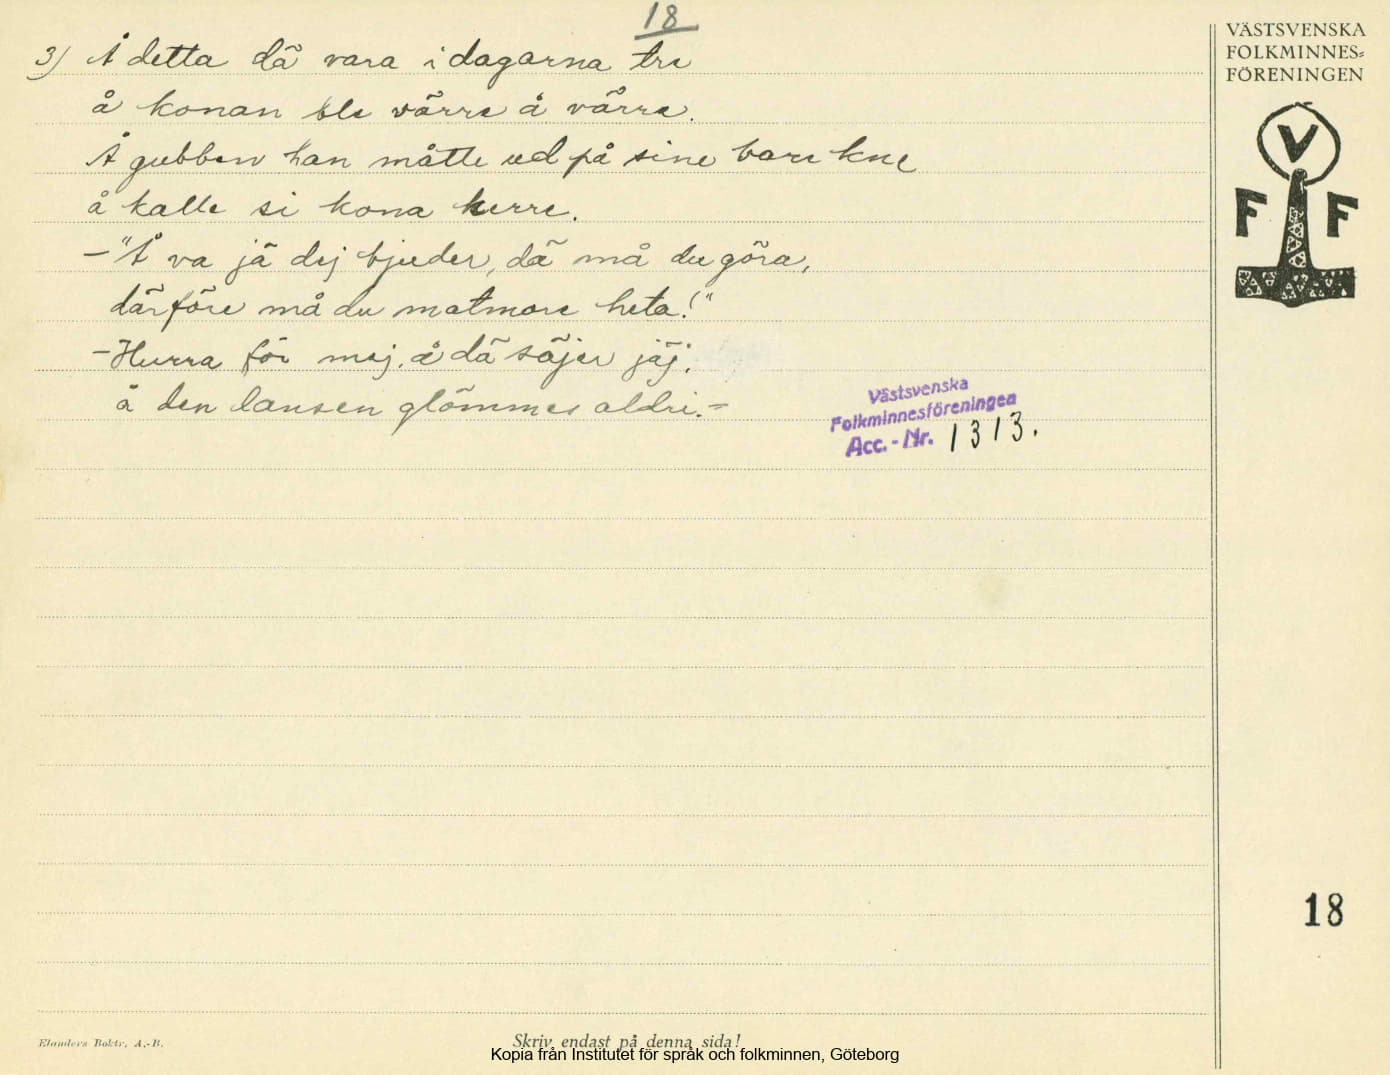 18
3) Å detta dä vara i dagarna tre
å konan ble värre å värre.
Å gubben han måtte ud på sine bare kne
å kalle si kona herre.
– "Å va jä dej bjuder, dä må du göra,
därföre må du matmore heta!"
– Hurra för mej. å dä säjer jäj.
å den dansen glömmes aldri. =
Västsvenska
Folkminnesföreningen
Acc. - Nr. 1313.
VÄSTSVENSKA
FOLKMINNES=
FÖRENINGEN
V
F F
18
Elanders Boktr. A.-B.
Skriv endast på denna sida!
Kopia från Institutet för språk och folkminnen, Göteborg